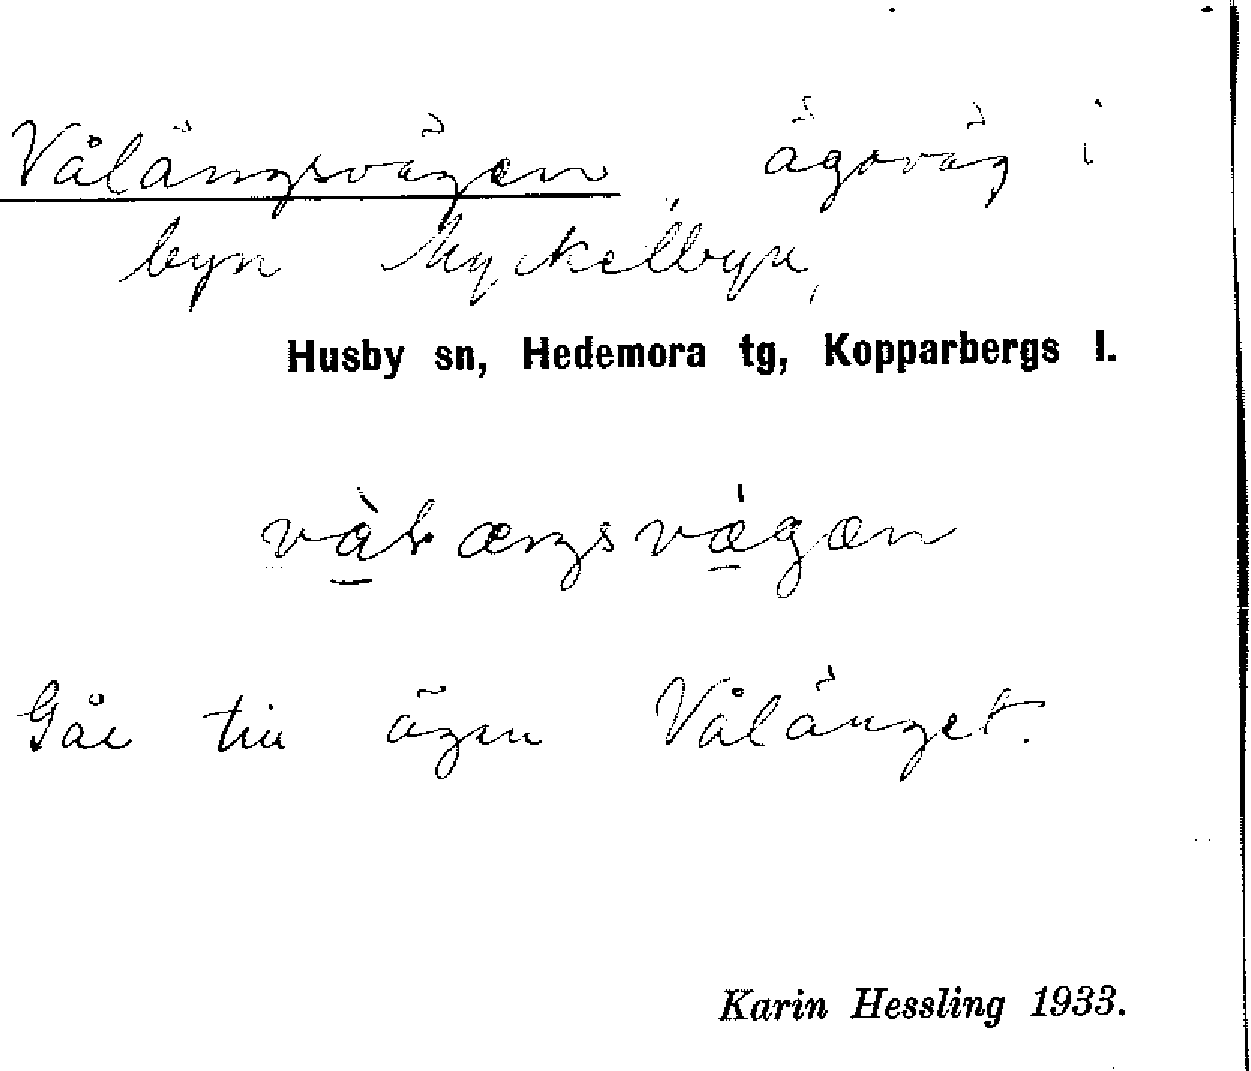 Vålängsvägen, ägoväg i
byn Myckelbyn,
Husby sn, Hedemora tg, Kopparbergs l.
Går till ägan Vålänget.
Karin Hessling 1933.